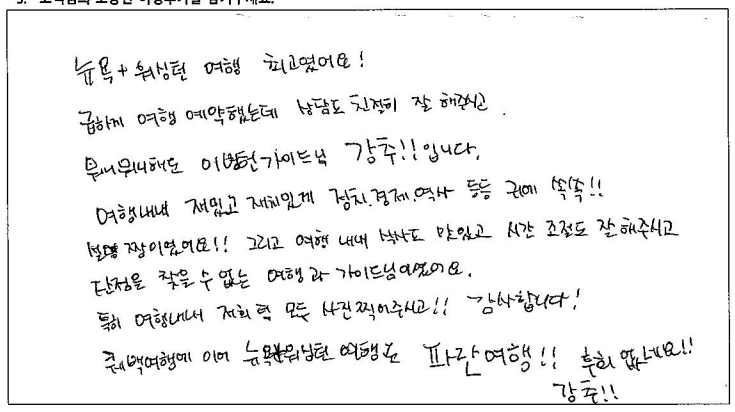 3. 고객님의 소중한 여행후기를 남겨주세요.
뉴욕+워싱턴 여행 최고였어요!
급하게 여행 예약했는데 상담도 친절히 잘 해주시고.
뭐니뭐니해도 가이드님 강추!!입니다.
여행내내 재밌고 재치있게 정치.경제.역사 등등 귀에 쏙쏙!!
설명 짱이였어요!! 그리고 여행 내내 식사도 맛있고 시간 조절도 잘 해주시고
단점을 찾을 수 없는 여행과 가이드님이였어요.
특히 여행내내 저희 모두 사진찍어주시고!! 감사합니다!
퀘백여행에 이어 뉴욕 워싱턴 여행도 파란여행!! 후회 없네요!!
강추!!